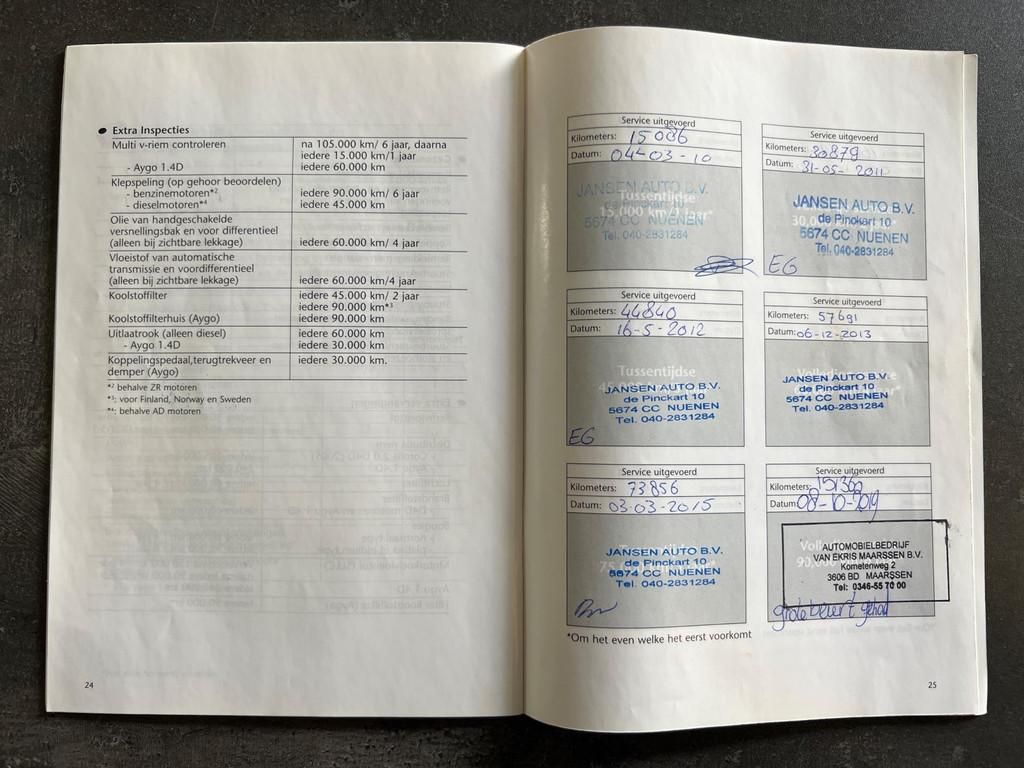 Extra Inspecties
Multi v-riem controleren
na 105.000 km/ 6 jaar, daarna
iedere 15.000 km/1 jaar
- Aygo 1.4D
iedere 60.000 km
Klepspeling (op gehoor beoordelen)
- benzinemotoren*²
iedere 90.000 km/ 6 jaar
- dieselmotoren*⁴
iedere 45.000 km
Olie van handgeschakelde
versnellingsbak en voor differentieel
(alleen bij zichtbare lekkage)
iedere 60.000 km/ 4 jaar
Vloeistof van automatische
transmissie en voordifferentieel
(alleen bij zichtbare lekkage)
iedere 60.000 km/4 jaar
Koolstoffilter
iedere 45.000 km/ 2 jaar
iedere 90.000 km*³
Koolstoffilterhuis (Aygo)
iedere 90.000 km
Uitlaatrook (alleen diesel)
iedere 60.000 km
- Aygo 1.4D
iedere 30.000 km
Koppelingspedaal,terugtrekveer en
demper (Aygo)
iedere 30.000 km.
*² behalve ZR motoren
*³: voor Finland, Norway en Sweden
*⁴: behalve AD motoren
24
Service uitgevoerd
Kilometers: 15086
Datum: 04-03-10
Tussentijdse
15.000 km
JANSEN AUTO B.V.
de Pinckart 10
5674 CC NUENEN
Tel. 040-2831284
Service uitgevoerd
Kilometers: 30879
Datum: 31-05-2011
JANSEN AUTO B.V.
de Pinckart 10
5674 CC NUENEN
Tel. 040-2831284
EG
Service uitgevoerd
Kilometers: 44840
Datum: 16-5-2012
Tussentijdse
JANSEN AUTO B.V.
de Pinckart 10
5674 CC NUENEN
Tel. 040-2831284
EG
Service uitgevoerd
Kilometers: 57691
Datum: 06-12-2013
JANSEN AUTO B.V.
de Pinckart 10
5674 CC NUENEN
Tel. 040-2831284
Service uitgevoerd
Kilometers: 73856
Datum: 03-03-2015
JANSEN AUTO B.V.
de Pinckart 10
5674 CC NUENEN
Tel. 040-2831284
Service uitgevoerd
Kilometers: 151360
Datum: 08-10-2019
AUTOMOBIELBEDRIJF
VAN EKRIS MAARSSEN B.V.
Kometenweg 2
3606 BD MAARSSEN
Tel: 0346-55 70 00
grote beurt gehad
*Om het even welke het eerst voorkomt
25